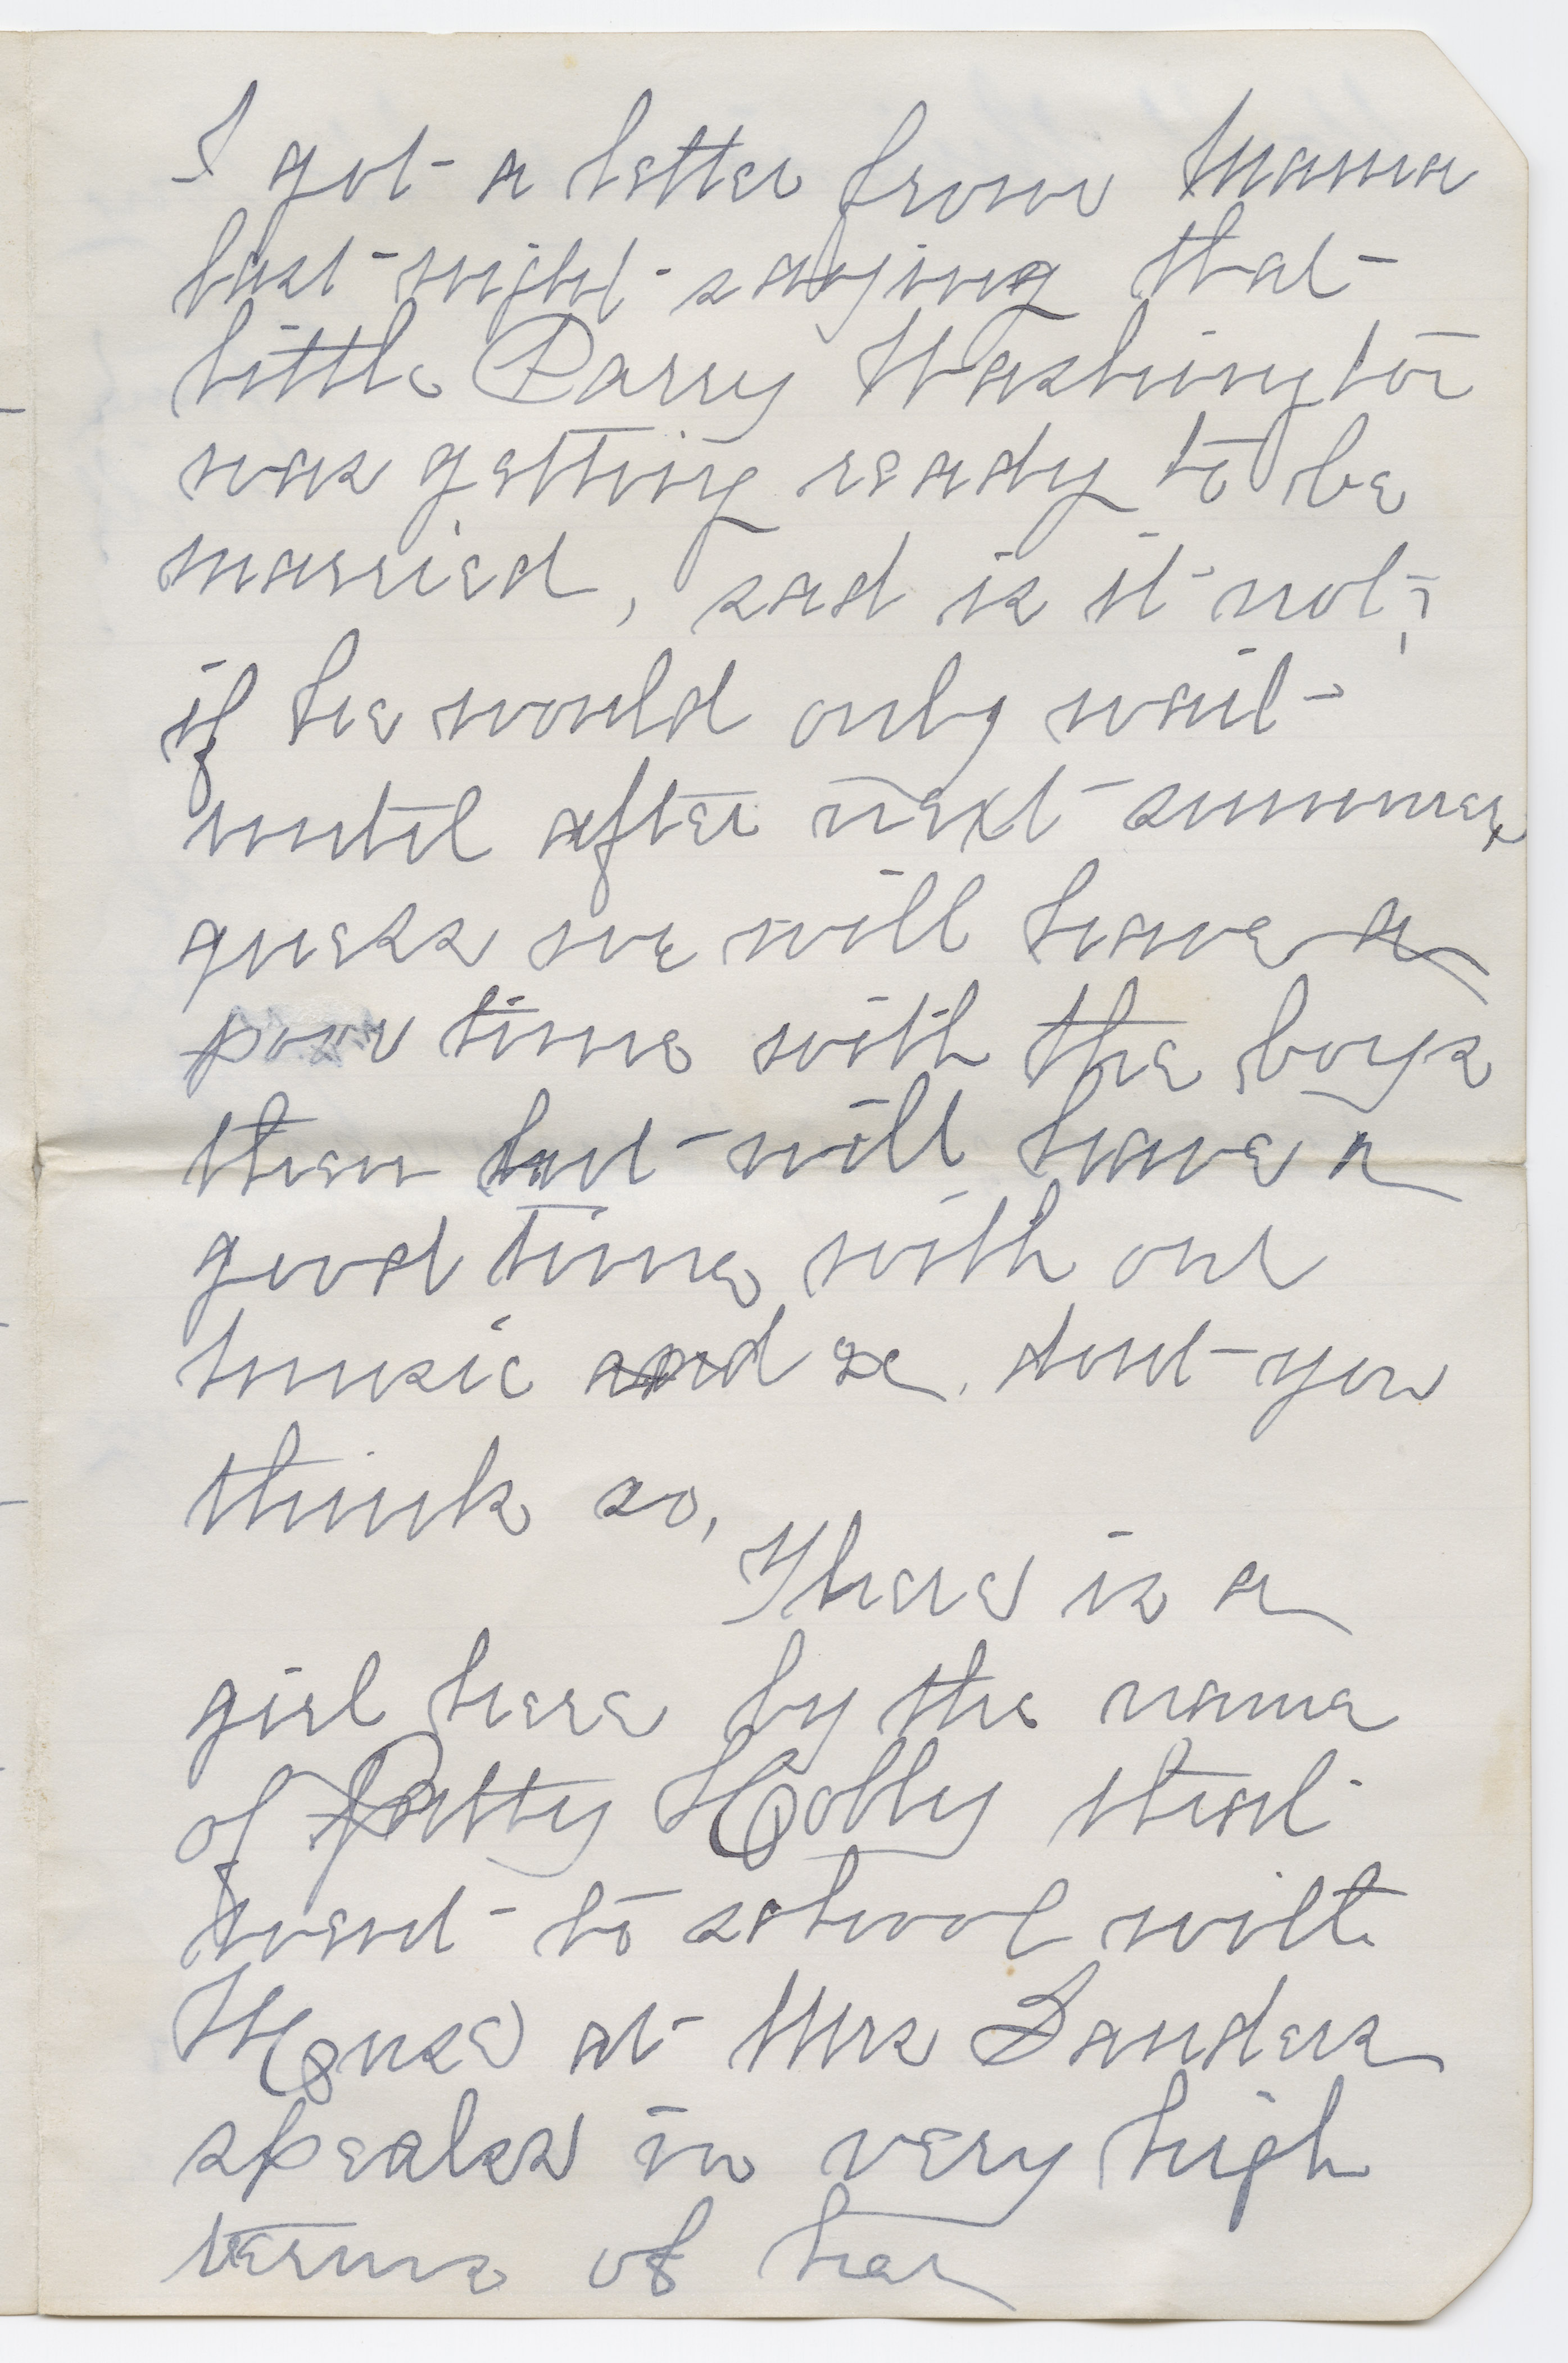 I got a letter from Mama
last night saying that
little Parry Washington
was getting ready to be
married, sad is it not,
if he would only wait
until after next summer
guess we will have a
poor time with the boys
then but will have a
good time with our
music and &c, dont you
think so,
There is a
girl here by the name
of Patty Holly that
went to school with
House at Mrs Sanders
speaks in very high
terms of her